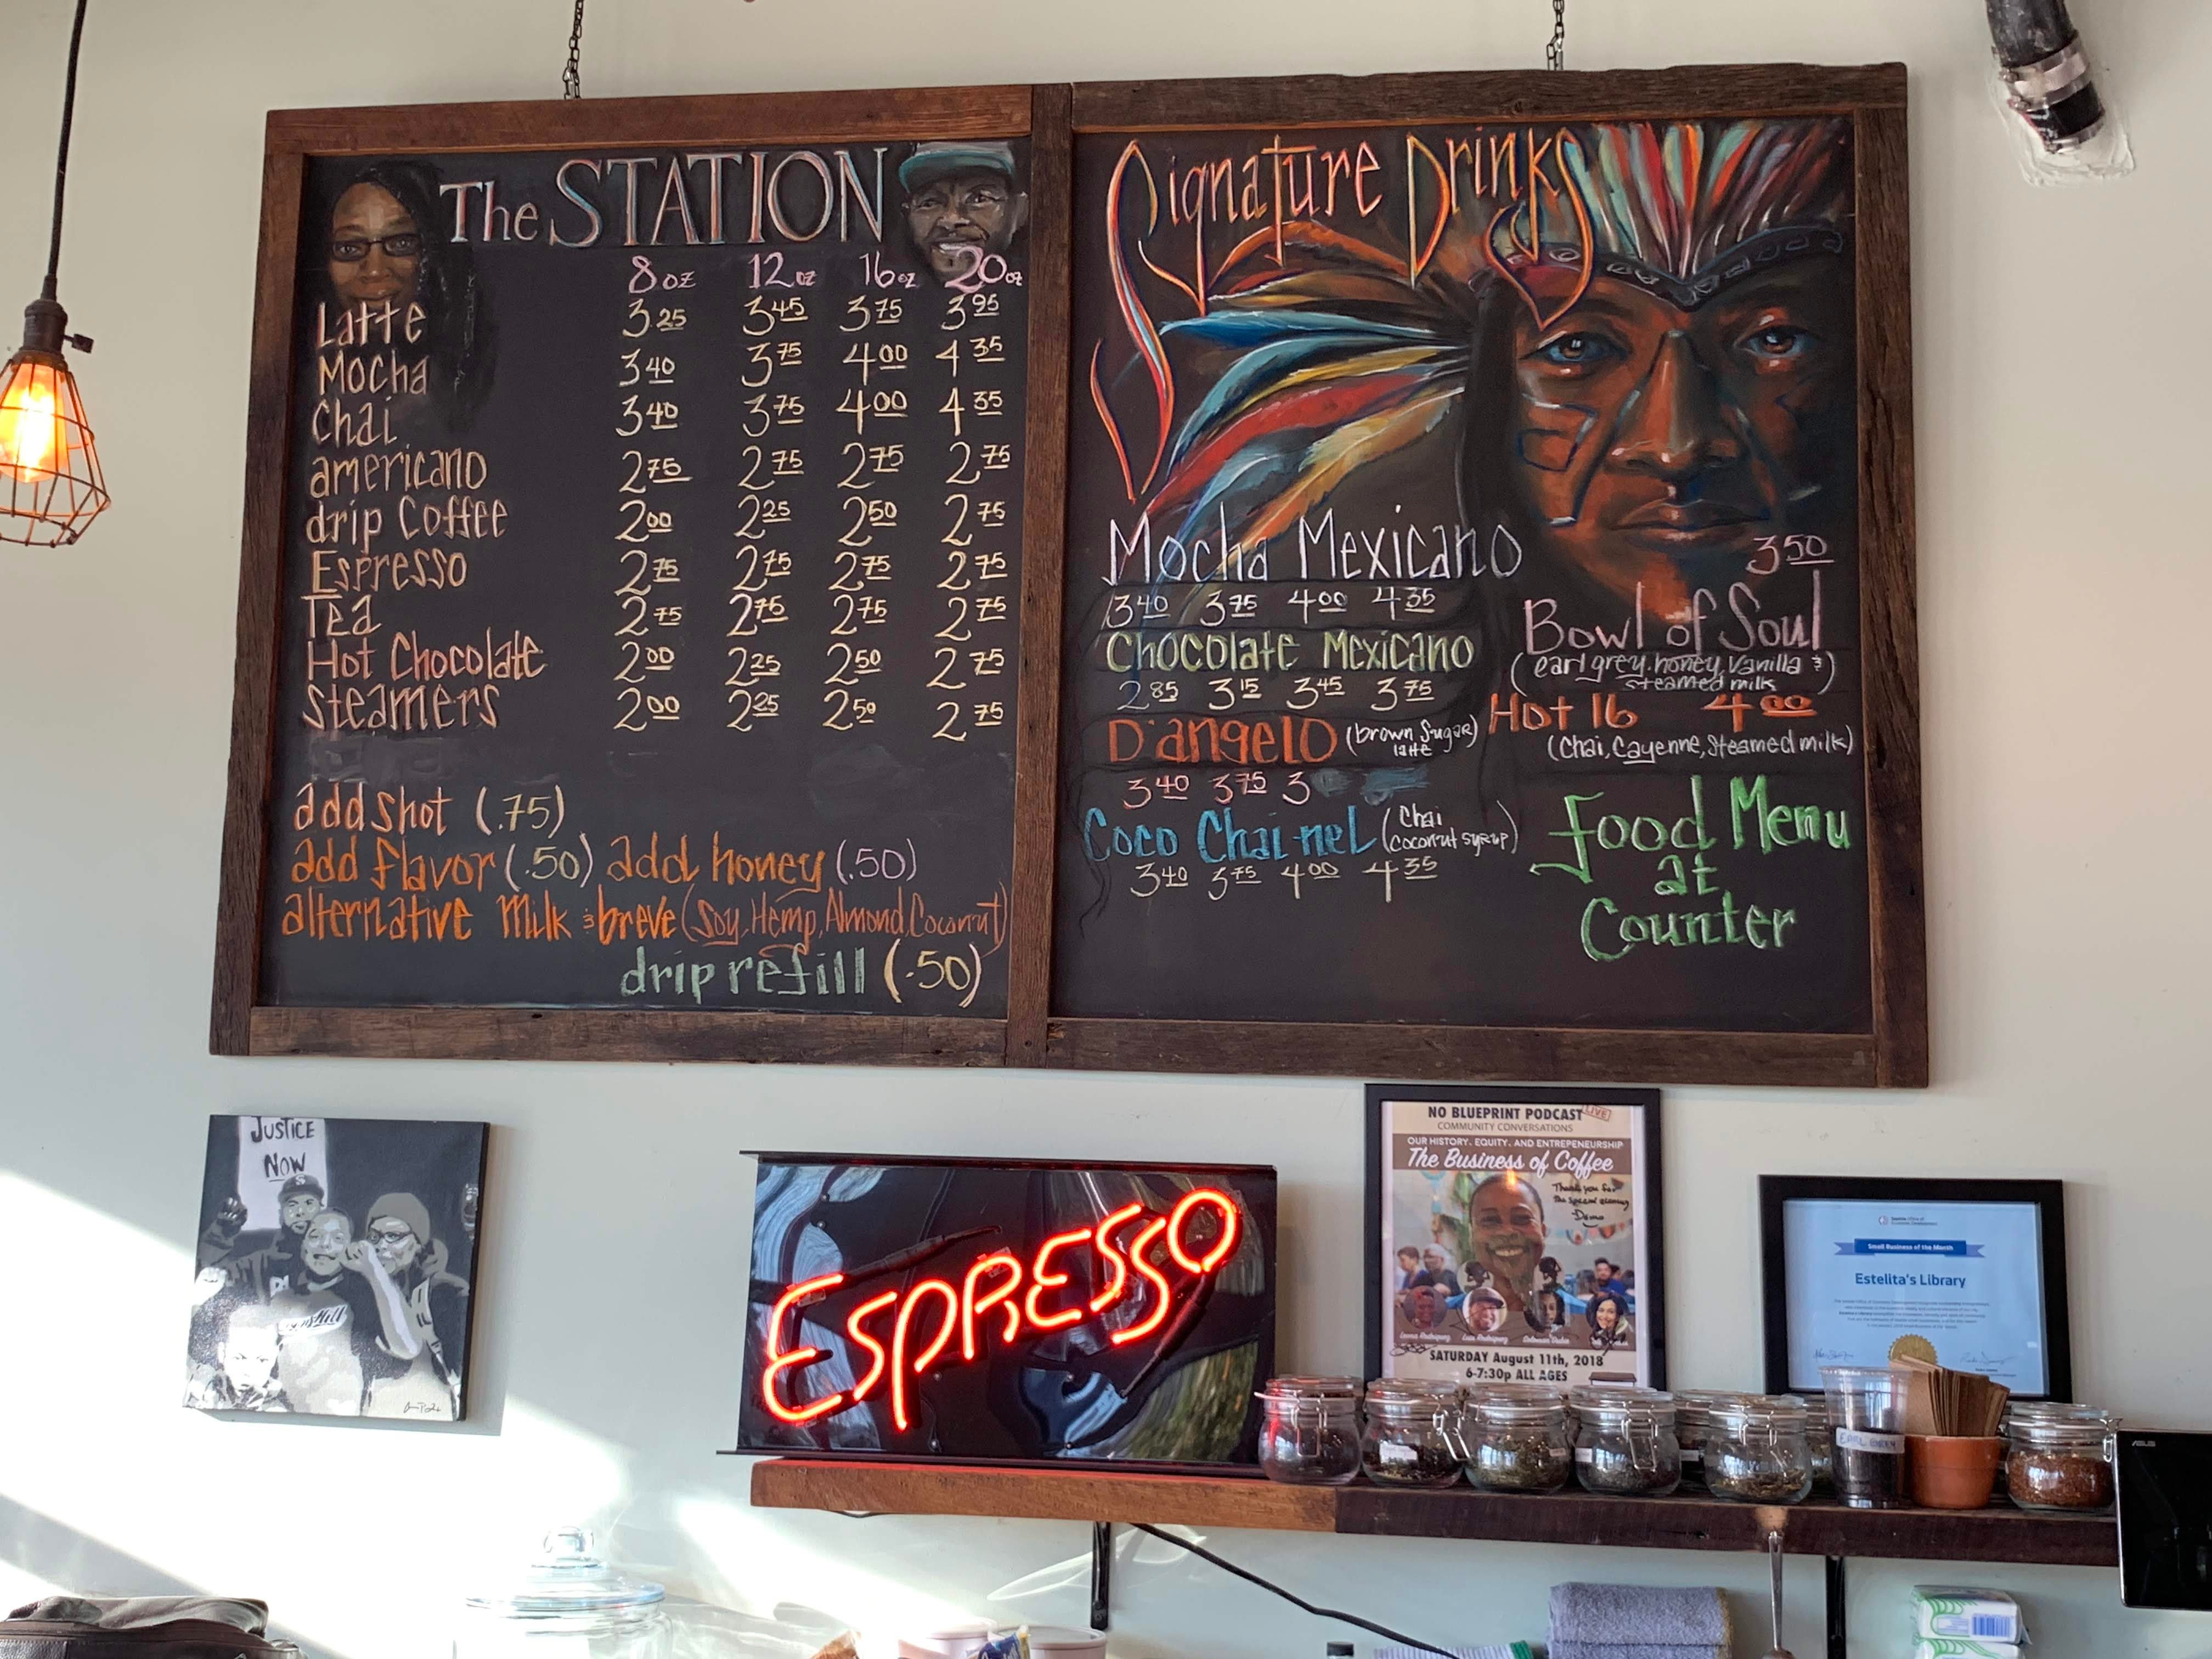 The STATION
8oz 12oz 16oz 20oz
Latte 3.25 3 45 3 75 3 95
Mocha 3 40 3 75 4 00 4 35
Chai 3 40 3 75 4 00 4 35
americano 2 75 2 75 2 75 2 75
drip Coffee 2 00 2 25 2 50 2 75
Espresso 2 75 2 75 2 75 2 75
Tea 2 75 2 75 2 75 2 75
Hot Chocolate 2 00 2 25 2 50 2 75
Steamers 2 00 2 25 2 50 2 75
add shot (.75)
add flavor (.50) add honey (.50)
alternative milk & breve (Soy, Hemp, Almond, Coconut)
drip refill (.50)
Signature Drinks
Mocha Mexicano
3 40 3 75 4 00 4 35
Chocolate Mexicano
2 85 3 15 3 45 3 75
D'angelo (brown Sugar
latte)
3 40 3 75 3
Coco Chai-nel (Chai
coconut syrup)
3 40 3 75 4 00 4 35
3 50
Bowl of Soul
(earl grey, honey, Vanilla &
steamed milk)
Hot 16 4 00
(Chai, Cayenne, Steamed milk)
Food Menu
at
Counter
JUSTICE
NOW
ESPRESSO
NO BLUEPRINT PODCAST LIVE
COMMUNITY CONVERSATIONS
OUR HISTORY, EQUITY, AND ENTREPENEURSHIP
The Business of Coffee
Thank you for
SATURDAY August 11th, 2018
6-7:30p ALL AGES
Small Business of the Month
Estelita's Library
EARL GREY
ASUS